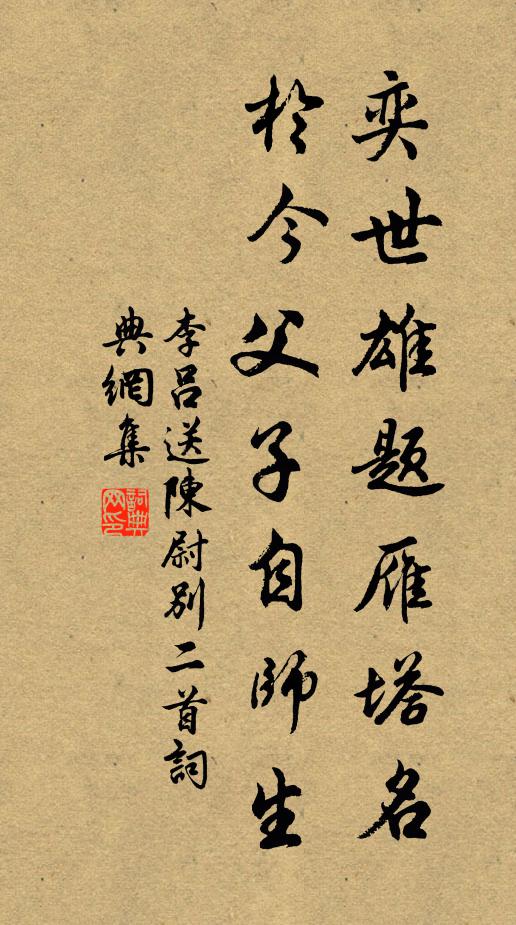 奕世雄题雁塔名
於今父子自師生
李吕送陳尉别二首詞
典網集
詞典網印